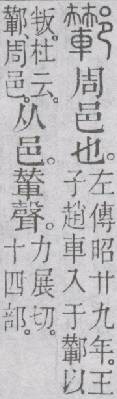 鄻周邑也。左傳昭廿九年。王子趙車入于鄻以
叛。杜云。鄻、周邑。从邑。輦聲。力展切。十四部。